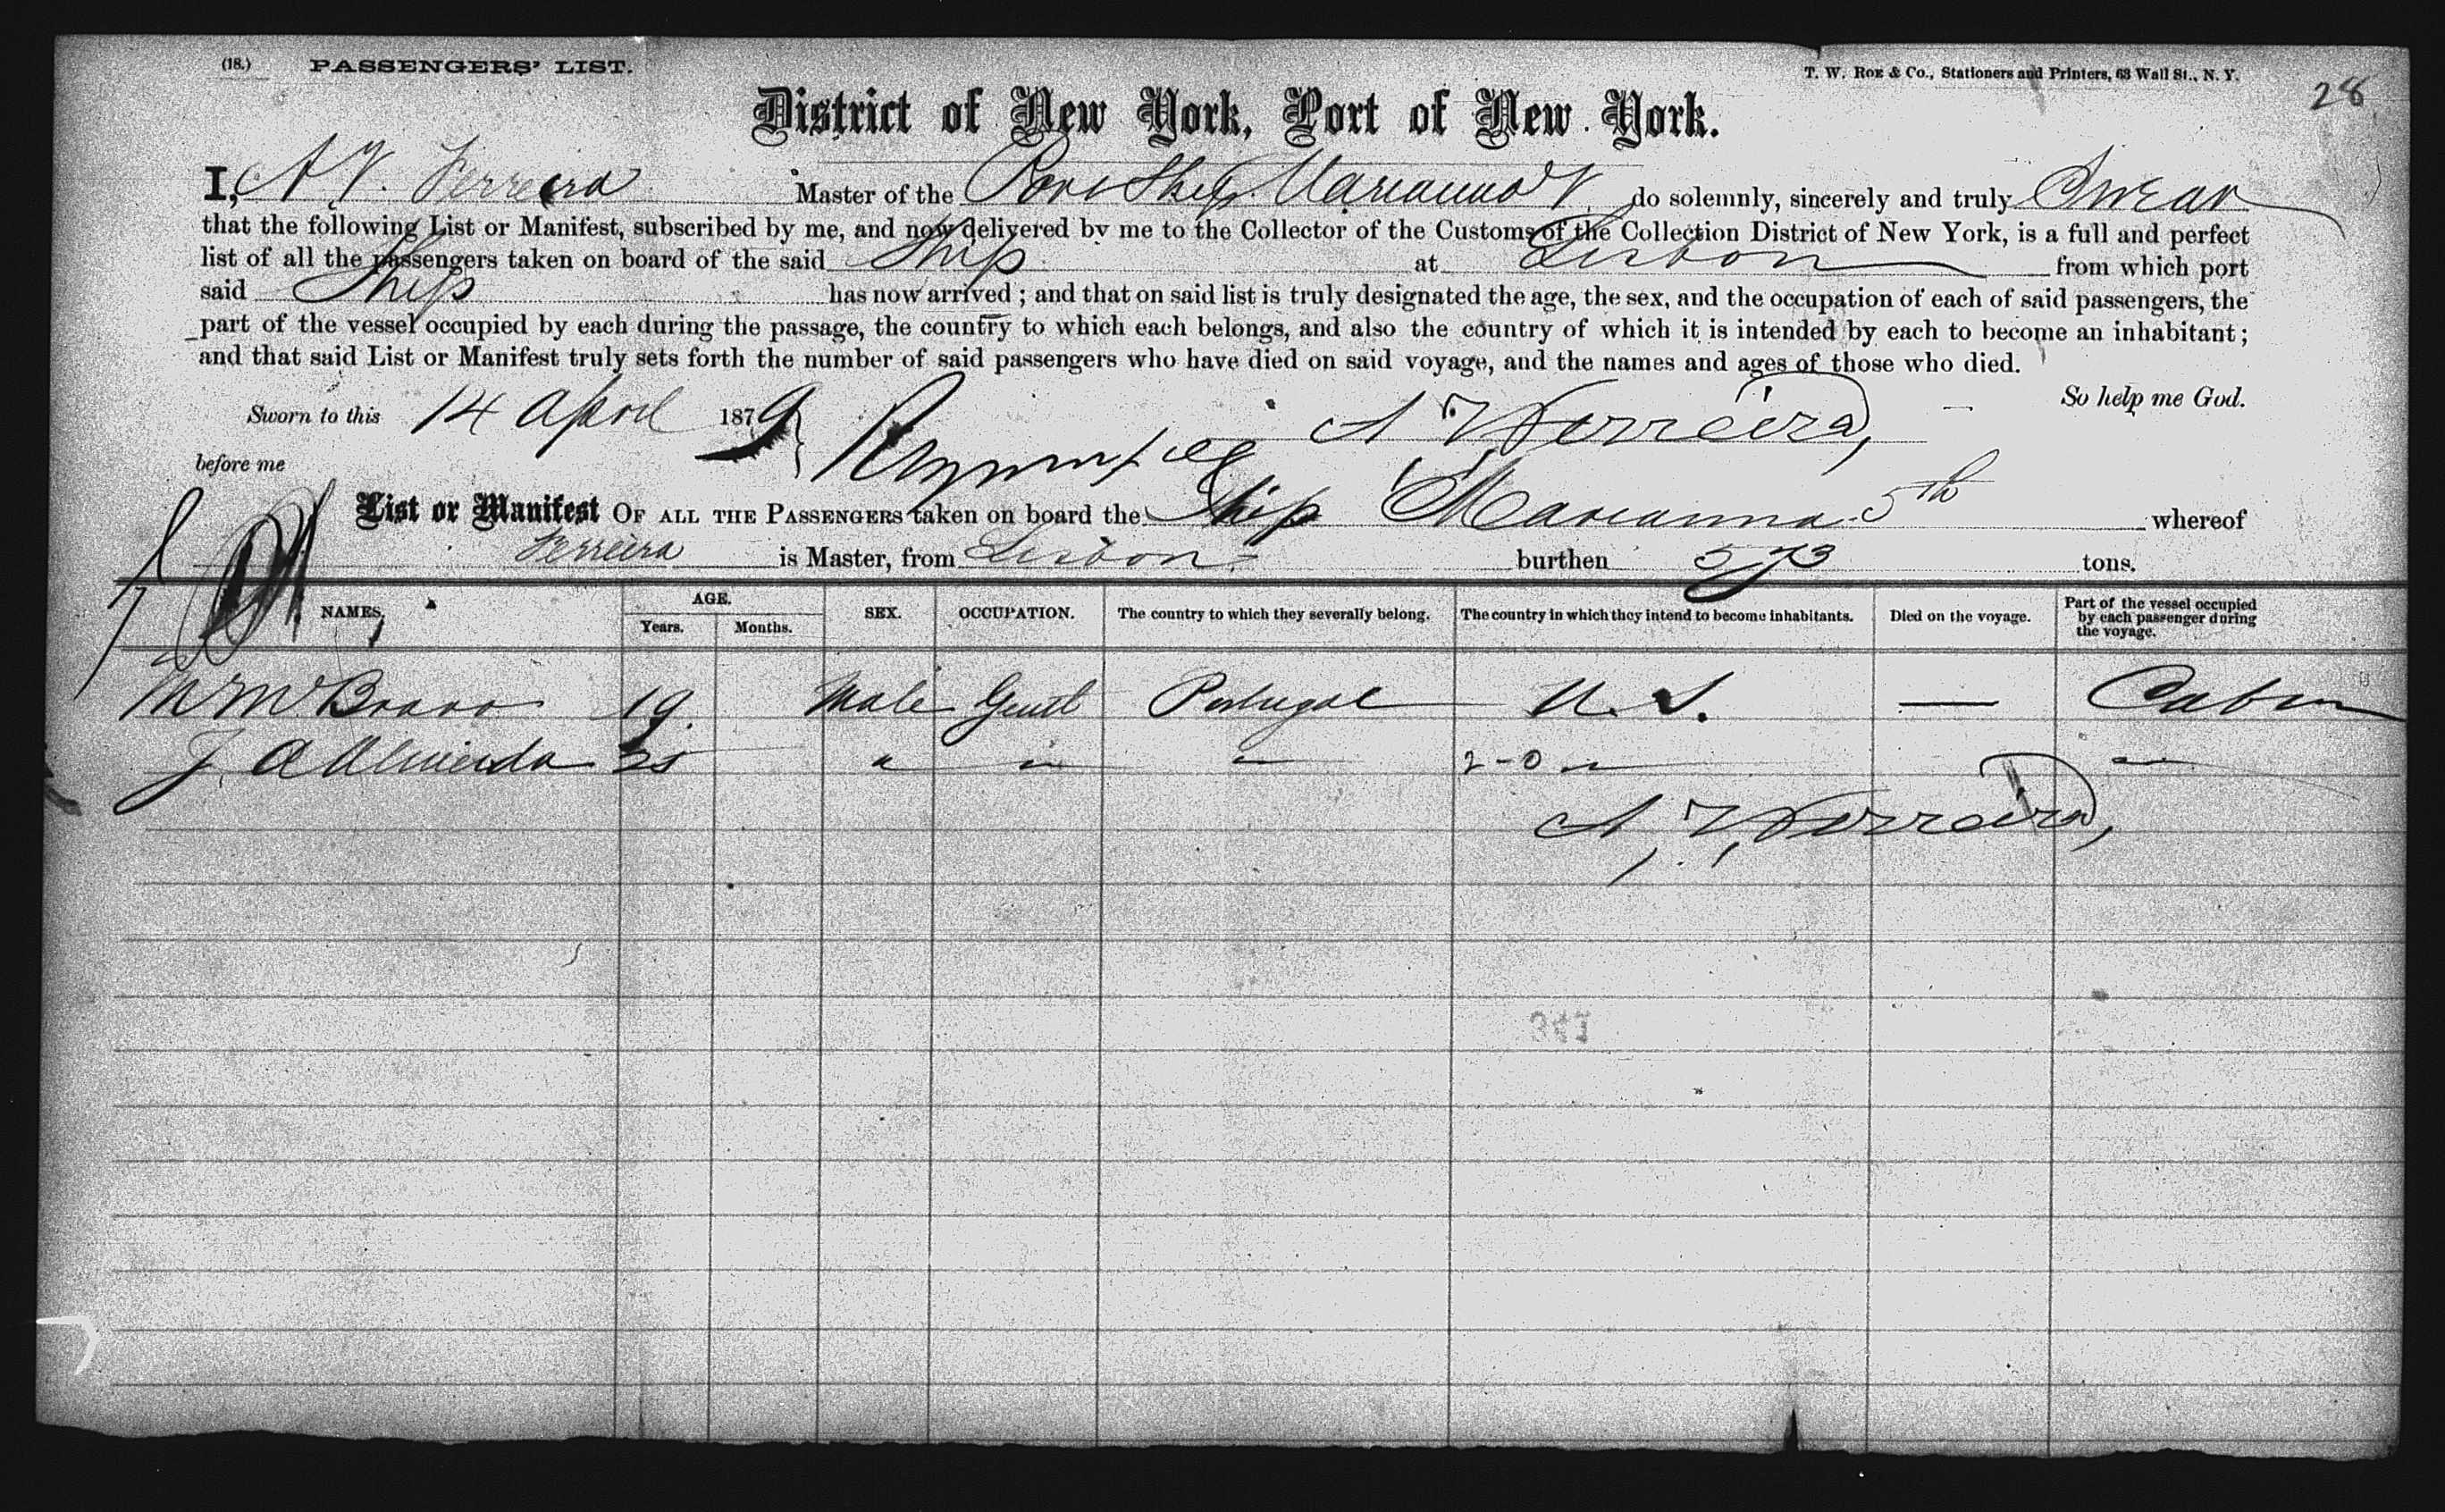 (18.) PASSENGERS' LIST. T. W. ROE & Co., Stationers and Printers, 63 Wall St., N. Y.
28
District of New York, Port of New York.
I, A V. Ferreira Master of the Port Ship Marianna V. do solemnly, sincerely and truly Swear
that the following List or Manifest, subscribed by me, and now delivered by me to the Collector of the Customs of the Collection District of New York, is a full and perfect
list of all the passengers taken on board of the said Ship at Lisbon from which port
said Ship has now arrived; and that on said list is truly designated the age, the sex, and the occupation of each of said passengers, the
part of the vessel occupied by each during the passage, the country to which each belongs, and also the country of which it is intended by each to become an inhabitant;
and that said List or Manifest truly sets forth the number of said passengers who have died on said voyage, and the names and ages of those who died.
So help me God.
Sworn to this 14 April 1879 A V Ferreira
before me
List or Manifest OF ALL THE PASSENGERS taken on board the Ship Marianna 5th whereof
Ferreira is Master, from Lisbon burthen 573 tons.
NAMES, AGE. Years. Months. SEX. OCCUPATION. The country to which they severally belong. The country in which they intend to become inhabitants. Died on the voyage. Part of the vessel occupied by each passenger during the voyage.
Bravo 19. Male Gentl Portugal U. S. — Cabin
J. A Almeida 25 " " " 2-0 " "
A. V. Ferreira
341